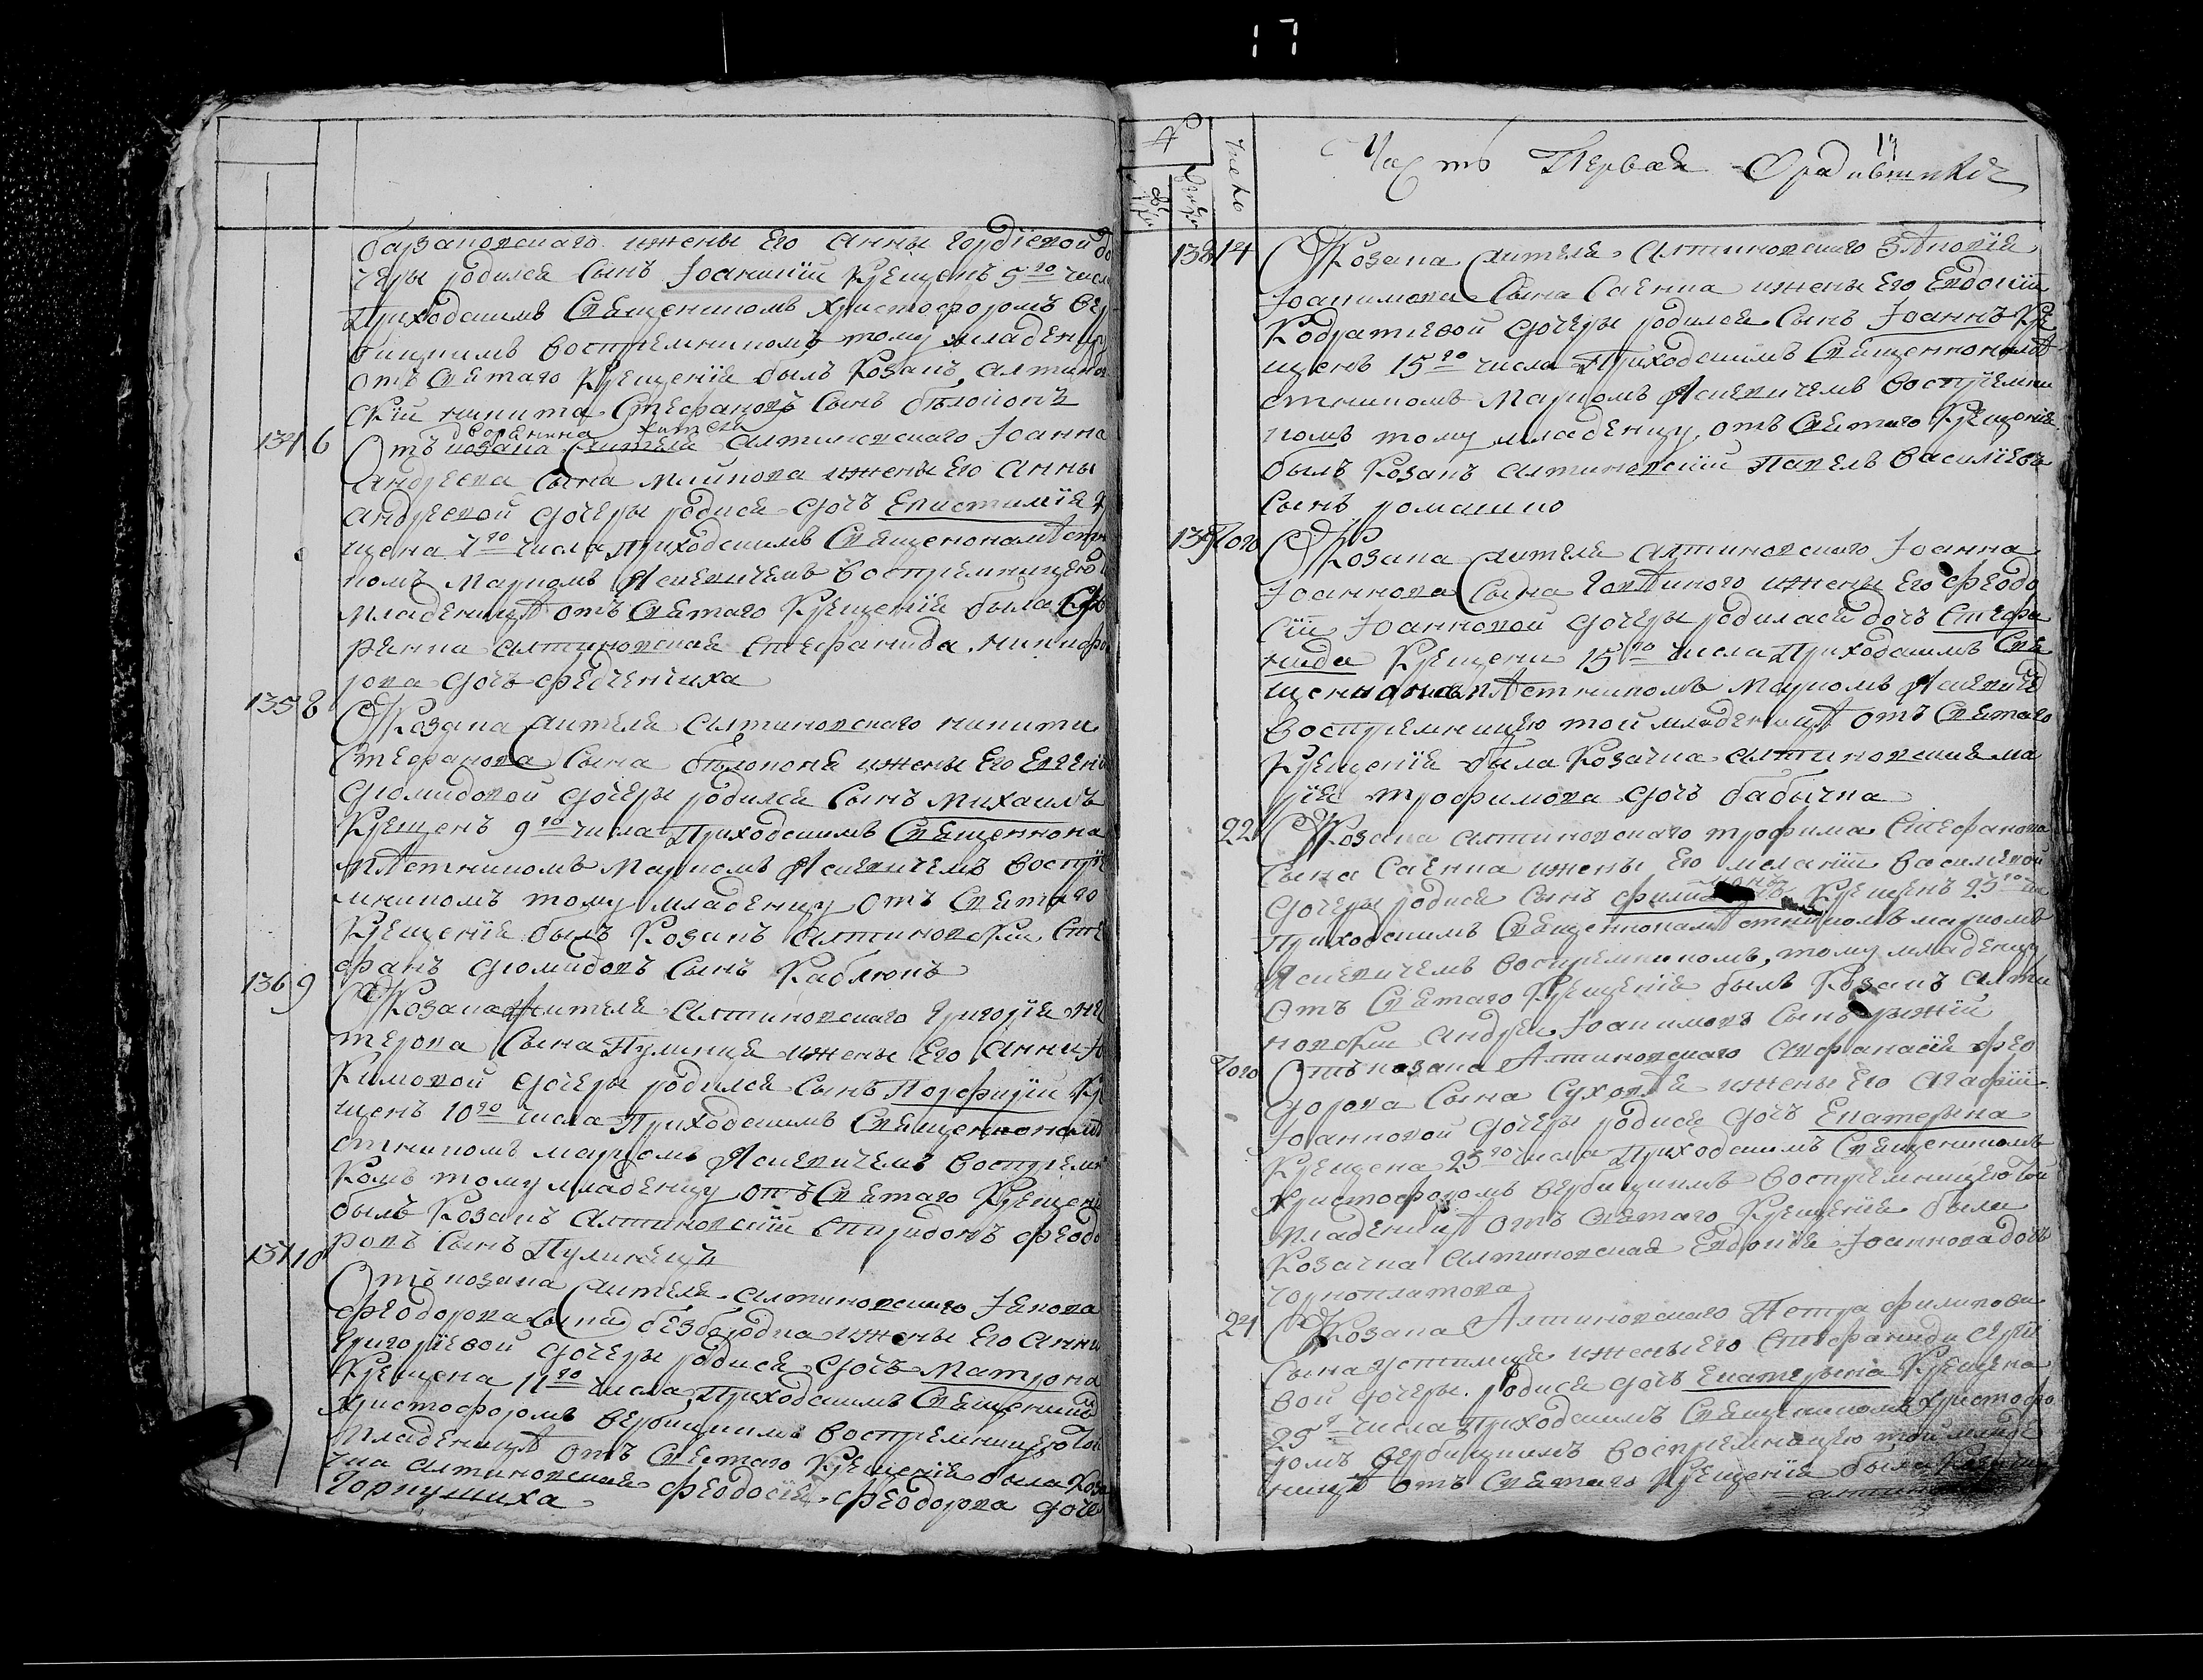 17
базановскаго ижены Его Анны Гордіевой до
чери родился Сынъ Іоаникій Крещенъ 5го числа
Приходскимъ Священикомъ Христофоромъ Вер
бицкимъ Воспріемникомъ тому младенцу
отъ Святаго Крещенія былъ Козакъ Алтинов
скій никита Стефановъ Сынъ бѣлоконь
дворянина жителя
134 6 Отъ козака жителя Алтиновскаго Іоанна
Андреева Сына ижены Его Анны
Андреевой дочеры родися дочъ Епистимія Кре
щена 7го числа Приходскимъ Священонамѣстни
комъ Маркомъ Воспріемницею
младеницѣ отъ Святаго Крещенія была
Алтиновская Стефанида никифо
рова дочъ федченчиха
135 8 От Козака жителя Алтиновскаго никити
Стефанова Сына бѣлоконя ижены Его Евгеніи
Діомидовой дочеры родился Сынъ Михаилъ
Крещенъ 9го числа Приходскимъ Священнона
мѣстникомъ Маркомъ Воспріе
мникомъ тому младенцу отъ Святаго
Крещенія былъ Козакъ Алтиновскій Сте
фанъ Діомидовъ Сынъ Каблюкъ
136 9 От Козака жителя Алтиновскаго Григорія не
стерова Сына Пулинца ижены Его Анны
Кимовой дочеры родился Сынъ Порфирій Кре
щенъ 10го числа Приходскимъ Священнонамѣ
стникомъ Маркомъ Воспріемни
комъ тому младенцу отъ Святаго Крещенія
былъ Козакъ Алтиновскій Спиридонъ Феодо
ровъ Сынъ Пулинецъ
137 10 Отъ козака жителя Алтиновскаго Іакова
Феодорова Сына безбородка ижены Его Анны
Григоріевой дочеры родися дочъ Матрона
Крещена 11го числа Приходскимъ Священикомъ
Христофоромъ Вербицкимъ Воспріемницею той
младеницѣ отъ Святаго Крещенія была Коза
чка Алтиновская Феодосія Феодорова дочъ
Горкушиха
№ Число Часть Первая Ородившихся 17
138 14 От Козака жителя Алтиновскаго Зѣновія
Іоакимова Сына Саенка ижены Его Евдокіи
Кодратіевой дочеры родился Сынъ Іоаннъ Кре
щенъ 15го числа Приходскимъ Священнонамѣ
стникомъ Маркомъ Воспріемни
комъ тому младенцу отъ Святаго Крещенія
былъ Козакъ Алтиновскій Павелъ Василіевъ
Сынъ ромашко
139 Того От Козака жителя Алтиновскаго Іоанна
Іоаннова Сына ижены Его Феодо
сіи Іоанновой дочеры родилася дочъ Стефа
нида Крещена 15го числа Приходскимъ Свя
щеннонамѣстникомъ Маркомъ
Воспріемницею той младеницѣ отъ Святаго
Крещенія была Козачка Алтиновская ма
рія трофимова дочъ бабычка
22 От Козака Алтиновскаго трофима Стефанова
Сына Саенка ижены Его меланіи Василіевой
дочеры родися Сынъ филимонъ Крещенъ 23го чи
Приходскимъ Священнонамѣстникомъ маркомъ
Воспріемникомъ тому младенцу
отъ Святаго Крещенія былъ Козакъ Алти
новскій Андрей Іоакимовъ Сынъ рижій
Того Отъ козака Алтиновскаго Афанасія фео
дорова Сына ижены Его Агафіи
Іоанновой дочеры родися дочъ Екатерина
Крещена 23го числа Приходскимъ Священикомъ
Христофоромъ Вербицкимъ Воспріемницею той
младеницѣ отъ Святаго Крещенія была
Козачка Алтиновская Евдокія Іоаннова дочъ
24 От Козака Алтиновскаго Петра филипова
Сына ижены Его Стефаниди Сергіе
вой дочеры родися дочъ Екатерина Крещена
25го числа Приходскимъ Священикомъ Христофо
ромъ Вербицкимъ Воспріемницею той младе
ницѣ отъ Святаго Крещенія была Козачка